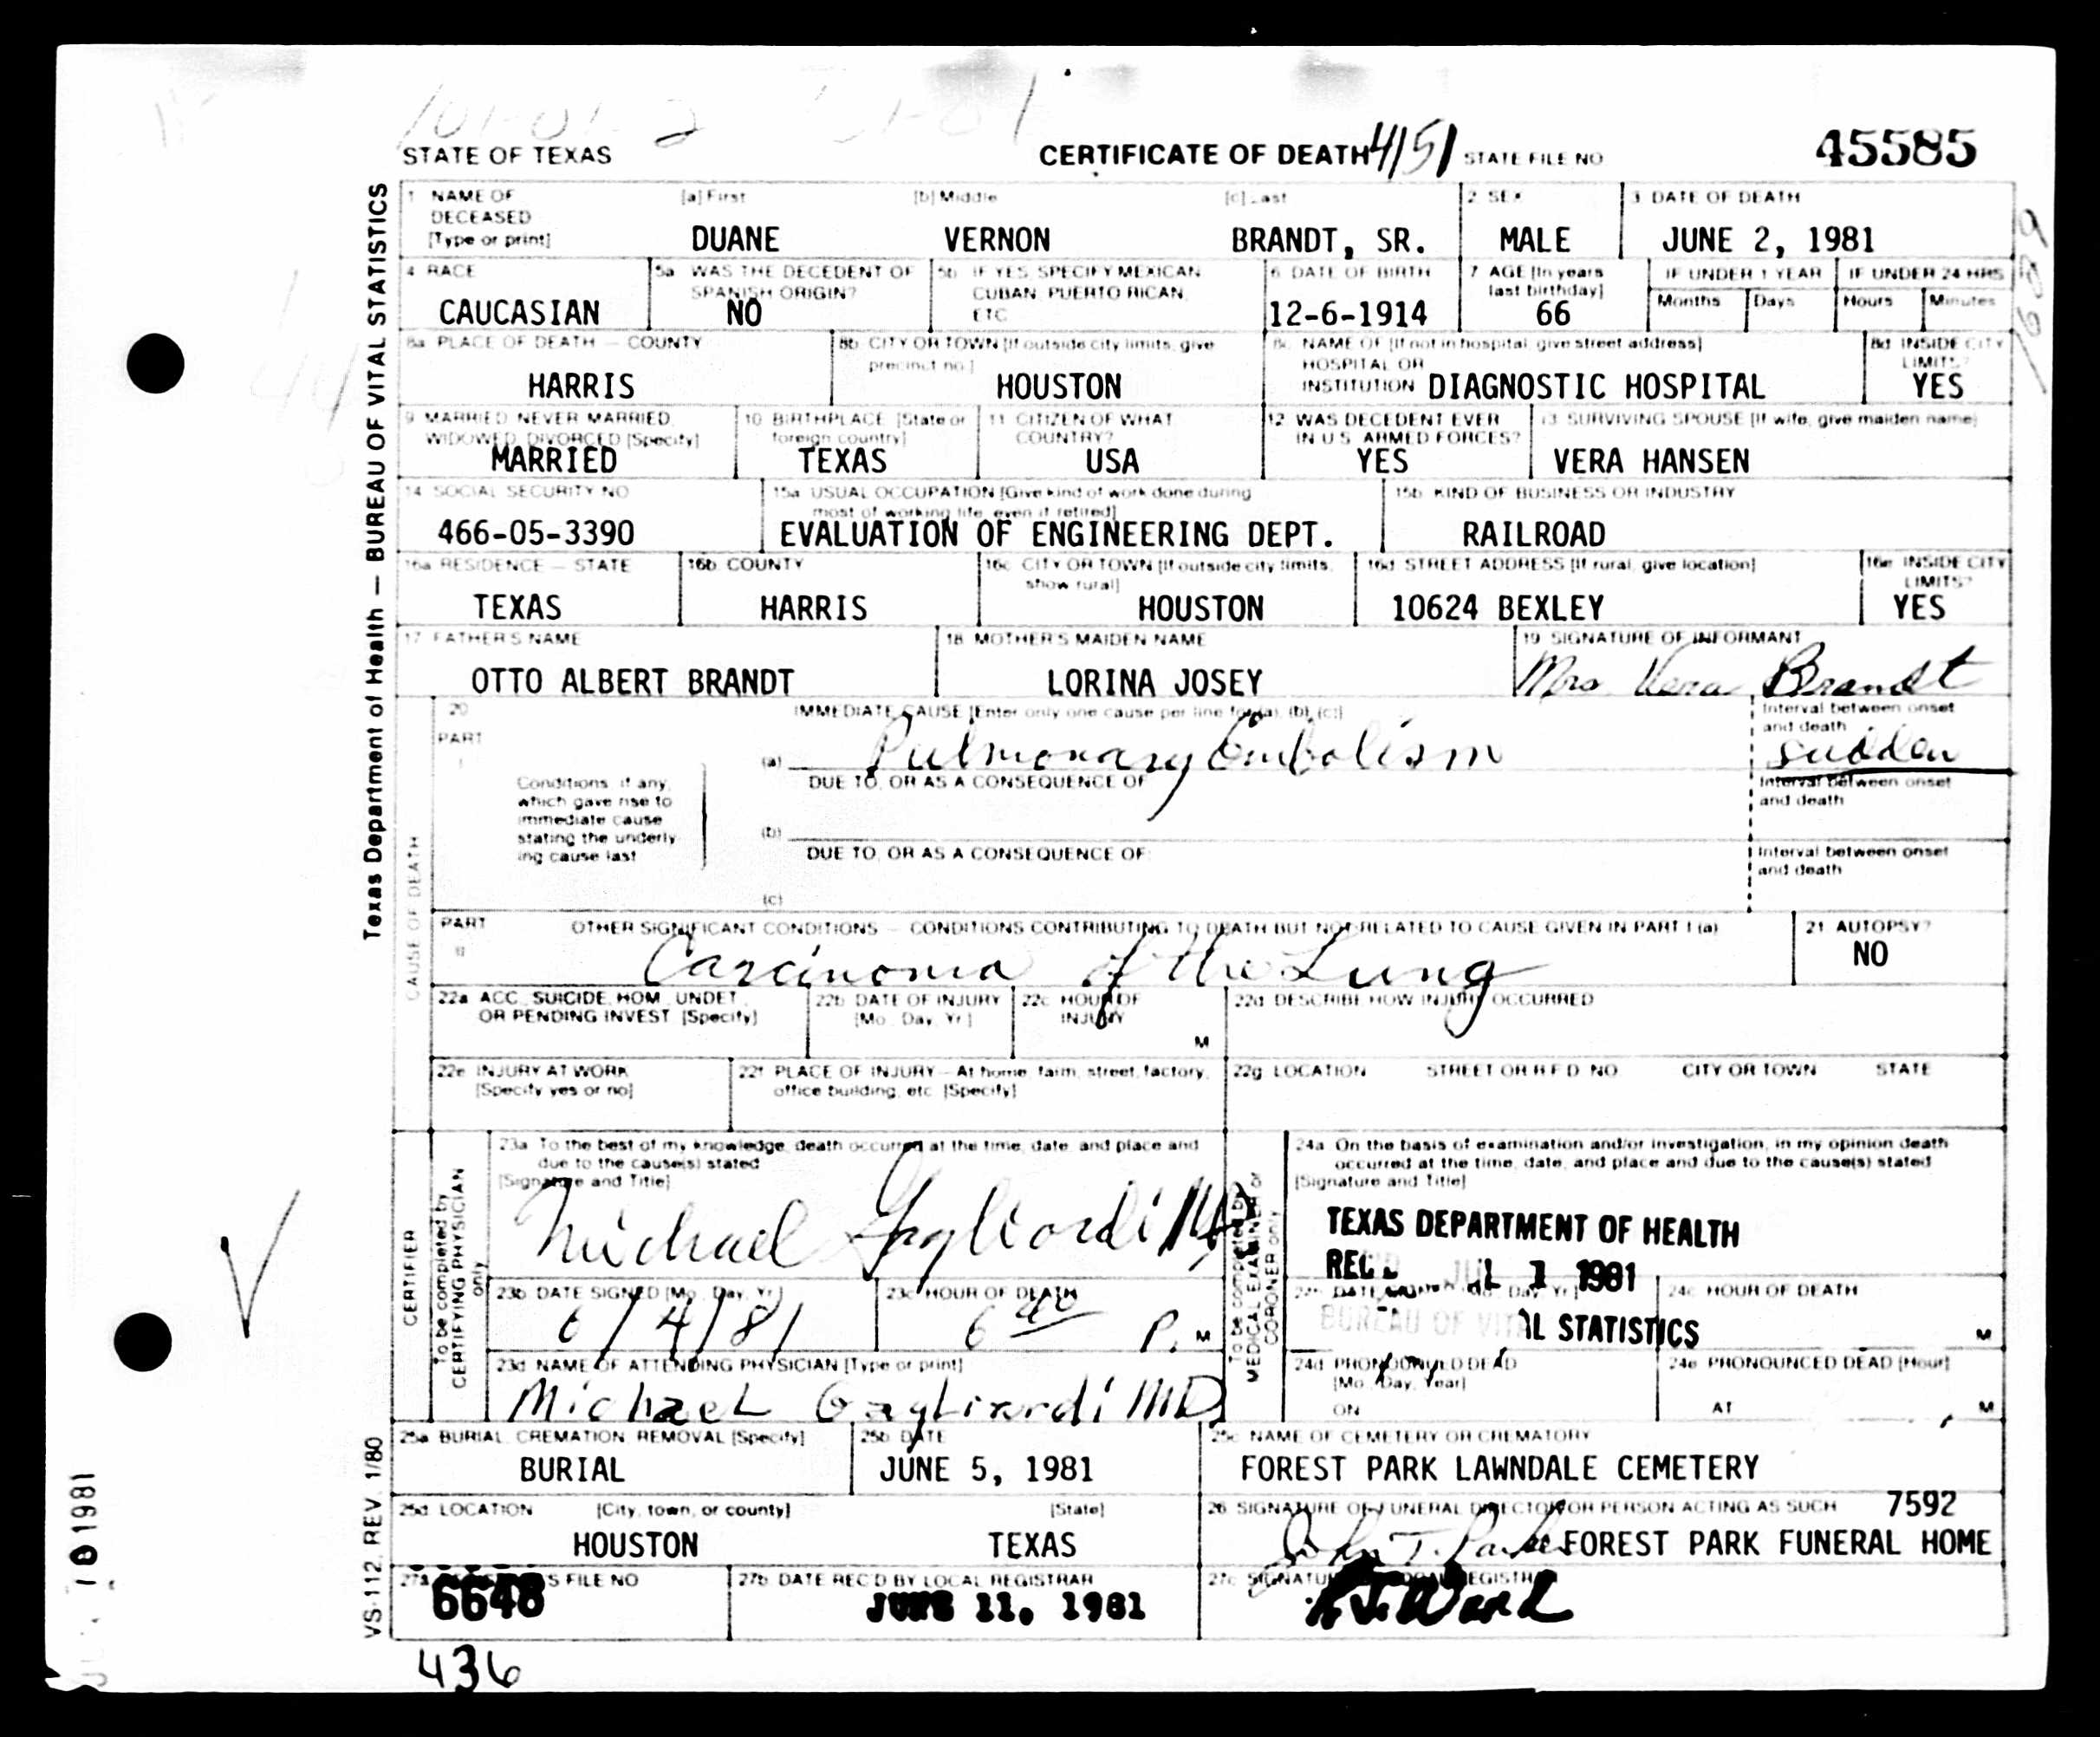 STATE OF TEXAS CERTIFICATE OF DEATH 4151 STATE FILE NO 45585
Texas Department of Health — BUREAU OF VITAL STATISTICS
1 NAME OF DECEASED [Type or print] [a] First [b] Middle [c] Last 2 SEX 3 DATE OF DEATH
DUANE VERNON BRANDT, SR. MALE JUNE 2, 1981
4 RACE 5a WAS THE DECEDENT OF SPANISH ORIGIN? 5b IF YES, SPECIFY MEXICAN, CUBAN, PUERTO RICAN, ETC 6 DATE OF BIRTH 7 AGE [In years last birthday] IF UNDER 1 YEAR IF UNDER 24 HRS
Months Days Hours Minutes
CAUCASIAN NO 12-6-1914 66
8a PLACE OF DEATH — COUNTY 8b CITY OR TOWN [If outside city limits, give precinct no.] 8c NAME OF [If not in hospital, give street address] HOSPITAL OR INSTITUTION 8d INSIDE CITY LIMITS?
HARRIS HOUSTON DIAGNOSTIC HOSPITAL YES
9 MARRIED, NEVER MARRIED, WIDOWED, DIVORCED [Specify] 10 BIRTHPLACE [State or foreign country] 11 CITIZEN OF WHAT COUNTRY? 12 WAS DECEDENT EVER IN U.S. ARMED FORCES? 13 SURVIVING SPOUSE [If wife, give maiden name]
MARRIED TEXAS USA YES VERA HANSEN
14 SOCIAL SECURITY NO 15a USUAL OCCUPATION [Give kind of work done during most of working life, even if retired] 15b KIND OF BUSINESS OR INDUSTRY
466-05-3390 EVALUATION OF ENGINEERING DEPT. RAILROAD
16a RESIDENCE — STATE 16b COUNTY 16c CITY OR TOWN [If outside city limits, show rural] 16d STREET ADDRESS [If rural, give location] 16e INSIDE CITY LIMITS?
TEXAS HARRIS HOUSTON 10624 BEXLEY YES
17 FATHER'S NAME 18 MOTHER'S MAIDEN NAME 19 SIGNATURE OF INFORMANT
OTTO ALBERT BRANDT LORINA JOSEY Mrs Vera Brandt
CAUSE OF DEATH
20 IMMEDIATE CAUSE [Enter only one cause per line for (a), (b), (c)] Interval between onset and death
PART I
(a) Pulmonary Embolism sudden
Conditions, if any, which gave rise to immediate cause stating the underlying cause last
DUE TO, OR AS A CONSEQUENCE OF Interval between onset and death
(b)
DUE TO, OR AS A CONSEQUENCE OF: Interval between onset and death
(c)
PART II OTHER SIGNIFICANT CONDITIONS — CONDITIONS CONTRIBUTING TO DEATH BUT NOT RELATED TO CAUSE GIVEN IN PART I (a) 21 AUTOPSY?
Carcinoma of the Lung NO
22a ACC., SUICIDE, HOM., UNDET., OR PENDING INVEST. [Specify] 22b DATE OF INJURY [Mo., Day, Yr.] 22c HOUR OF INJURY M 22d DESCRIBE HOW INJURY OCCURRED
22e INJURY AT WORK [Specify yes or no] 22f PLACE OF INJURY — At home, farm, street, factory, office building, etc. [Specify] 22g LOCATION STREET OR R.F.D. NO. CITY OR TOWN STATE
CERTIFIER
To be completed by CERTIFYING PHYSICIAN only
23a To the best of my knowledge, death occurred at the time, date, and place and due to the cause(s) stated
[Signature and Title]
Michael Gagliardi MD
23b DATE SIGNED [Mo., Day, Yr.] 23c HOUR OF DEATH
6/4/81 6 00 P. M
23d NAME OF ATTENDING PHYSICIAN [Type or print]
Michael Gagliardi MD
To be completed by MEDICAL EXAMINER or CORONER only
24a On the basis of examination and/or investigation, in my opinion death occurred at the time, date, and place and due to the cause(s) stated
[Signature and Title]
TEXAS DEPARTMENT OF HEALTH
REC JUL 1 1981
BUREAU OF VITAL STATISTICS
24c HOUR OF DEATH M
24d PRONOUNCED DEAD [Mo., Day, Year] ON 24e PRONOUNCED DEAD [Hour] AT M
25a BURIAL, CREMATION, REMOVAL [Specify] 25b DATE 25c NAME OF CEMETERY OR CREMATORY
BURIAL JUNE 5, 1981 FOREST PARK LAWNDALE CEMETERY
25d LOCATION [City, town, or county] [State] 26 SIGNATURE OF FUNERAL DIRECTOR OR PERSON ACTING AS SUCH 7592
HOUSTON TEXAS John T. Parker FOREST PARK FUNERAL HOME
27a S FILE NO 27b DATE REC'D BY LOCAL REGISTRAR 27c SIGNATURE REGISTRAR
6648 JUNE 11, 1981 Ward
VS-112, REV. 1/80
436
10 1981